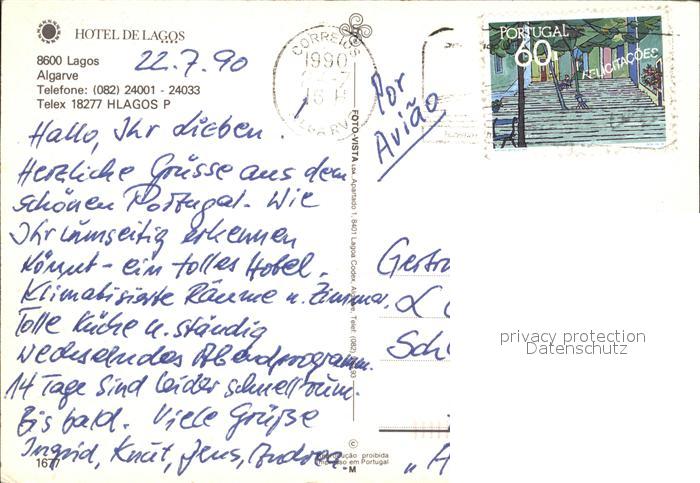 HOTEL DE LAGOS
8600 Lagos
Algarve
Telefone: (082) 24001 - 24033
Telex 18277 HLAGOS P
22.7.90
Hallo, Ihr Lieben.
Herzliche Grüsse aus dem
schönen Portugal. Wie
Ihr umseitig erkennen
könnt - ein tolles Hotel.
Klimatisierte Räume u. Zimmer.
Tolle Küche u. ständig
wechselndes Abendprogramm.
14 Tage sind leider schnell rum.
Bis bald. Viele Grüße
Ingrid, Knut, Jens, Andrea
1677
CORREIOS
1990
ALGARVE
Por
Avião
PORTUGAL
60
FELICITAÇÕES
FOTO-VISTA LDA. Apartado 1, 8401 Lagoa Codex, Algarve, Telef: (082)
Gertr
L
Sch
privacy protection
Datenschutz
© Reprodução proibida
Impresso em Portugal
M
"A